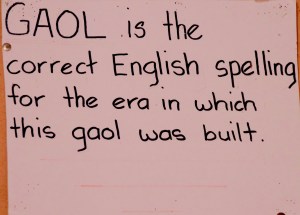 GAOL is the
correct English spelling
for the era in which
this gaol was built.